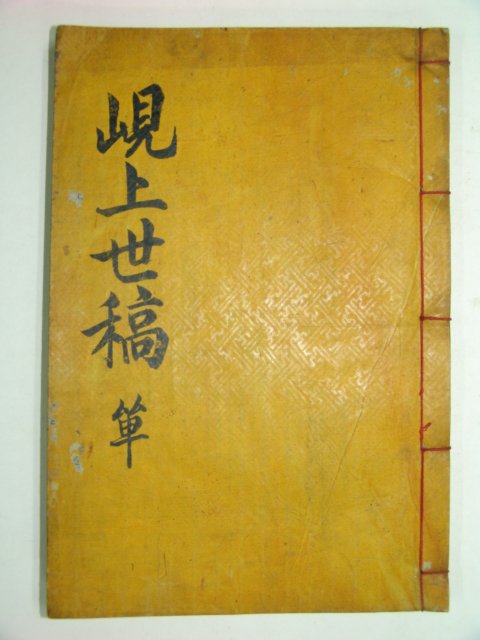 峴上世稿
單